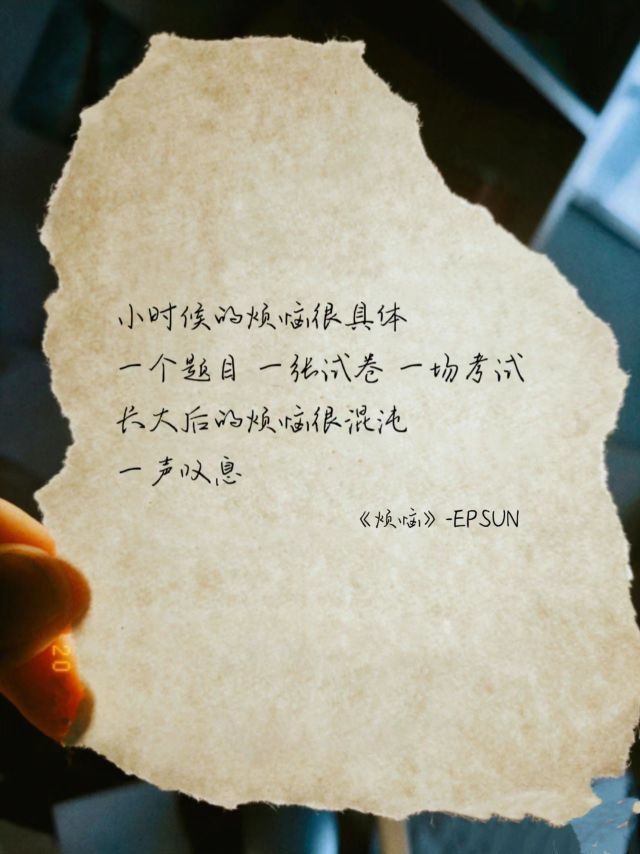 小时候的烦恼很具体
一个题目 一张试卷 一场考试
长大后的烦恼很混沌
一声叹息
《烦恼》-EPSUN
20